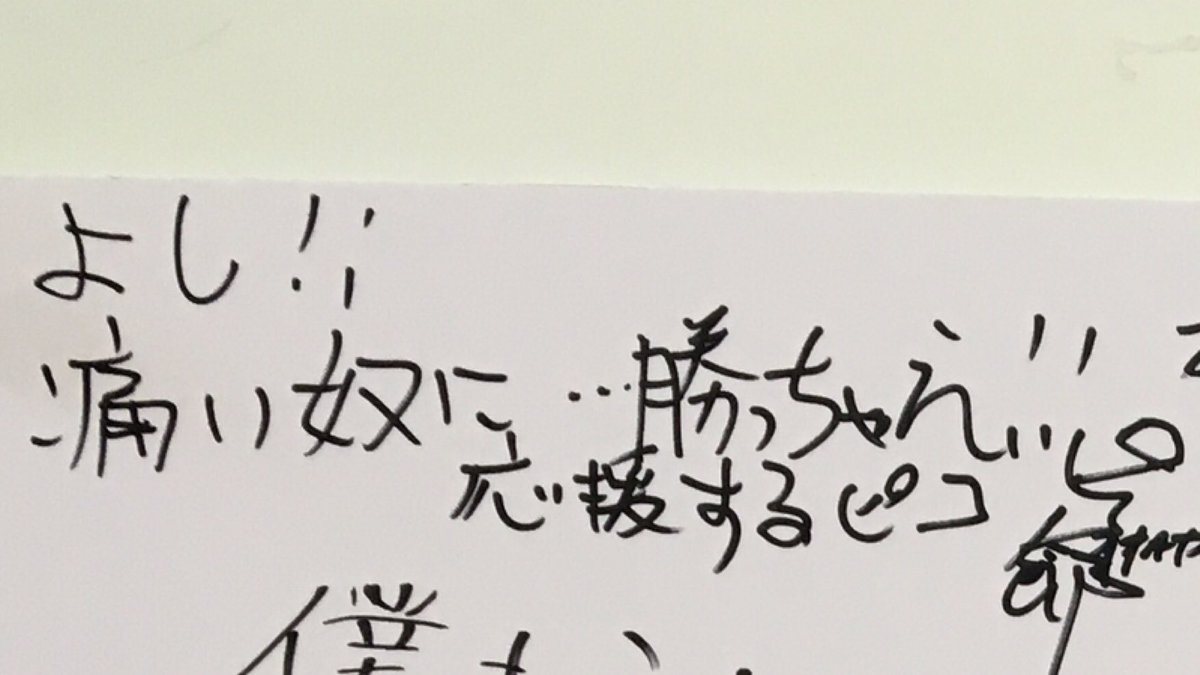 よし!!
痛い奴に…勝っちゃえ!!
応援するピコ
僕も